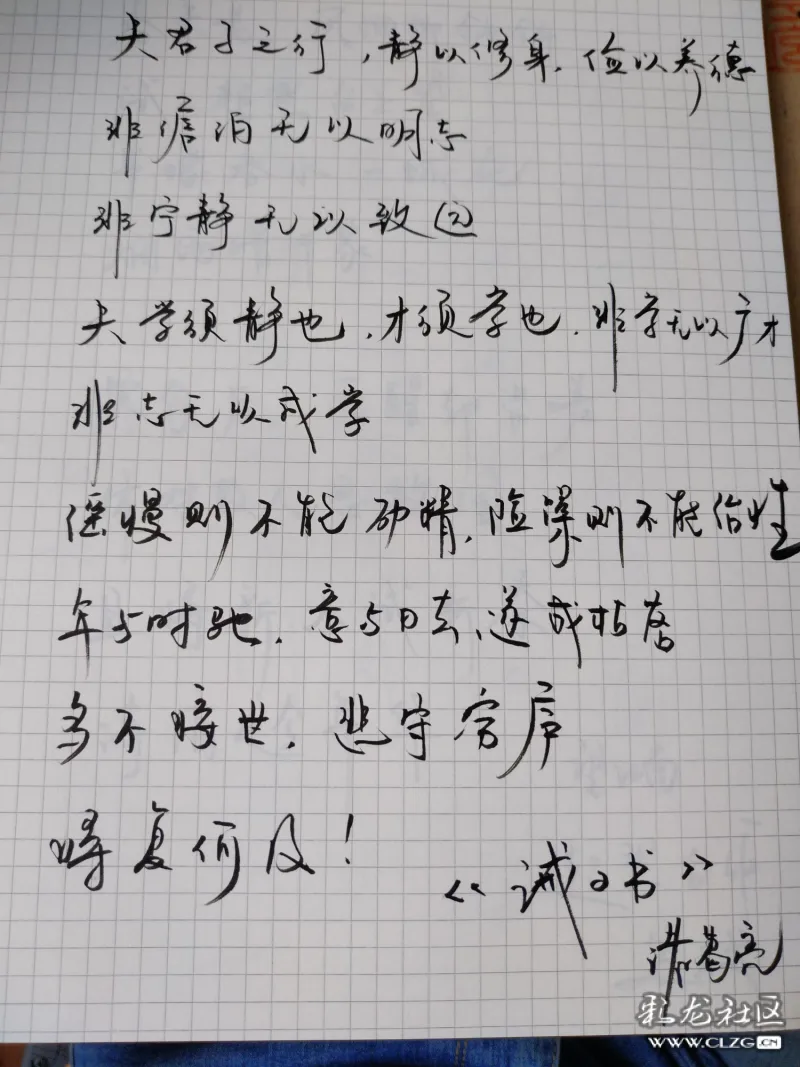 夫君子之行，静以修身，俭以养德
非澹泊无以明志
非宁静无以致远
夫学须静也，才须学也，非学无以广才
非志无以成学
慆慢则不能励精，险躁则不能治性
年与时驰，意与日去，遂成枯落
多不接世，悲守穷庐
将复何及！
《诫子书》
诸葛亮
彩龙社区
WWW.CLZG.CN